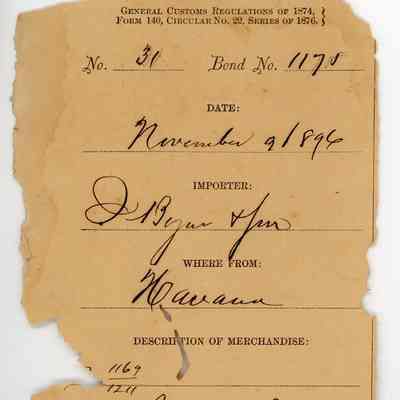 General Customs Regulations of 1874, }
Form 140, Circular No. 22, Series of 1876. }
No. 31 Bond No. 1178
DATE:
November 9/1896
IMPORTER:
& Son
WHERE FROM:
Havana
DESCRIPTION OF MERCHANDISE:
1169
1211